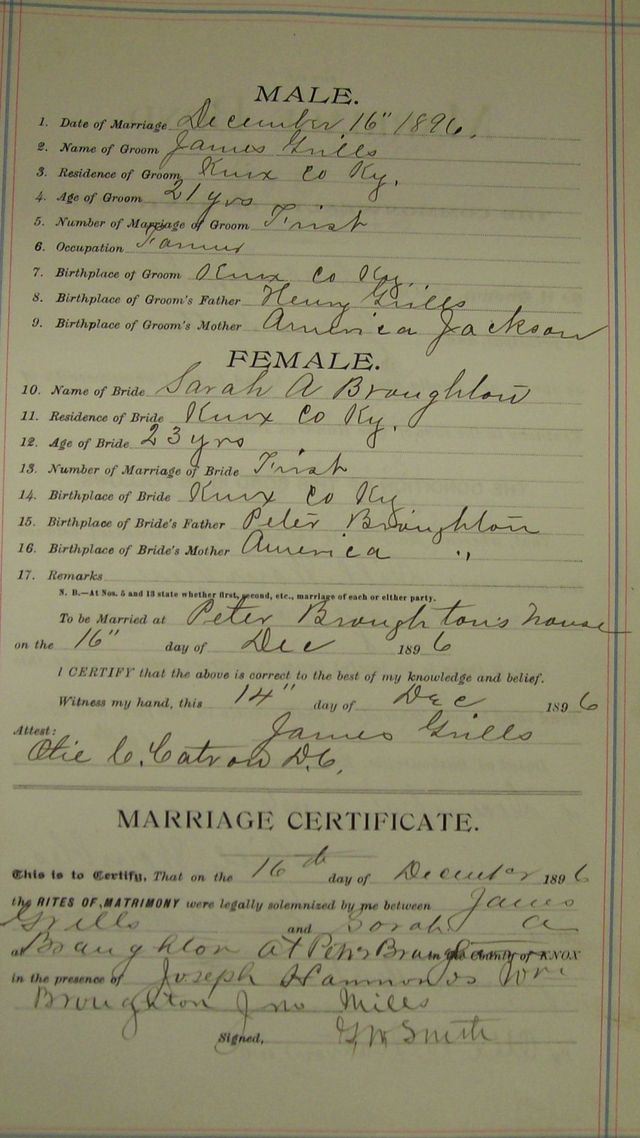 MALE.
1. Date of Marriage December 16" 1896.
2. Name of Groom James Grills
3. Residence of Groom Knox Co Ky.
4. Age of Groom 21 yrs
5. Number of Marriage of Groom First
6. Occupation Farmer
7. Birthplace of Groom Knox Co Ky.
8. Birthplace of Groom's Father Henry Grills
9. Birthplace of Groom's Mother America Jackson
FEMALE.
10. Name of Bride Sarah A Broughton
11. Residence of Bride Knox Co Ky.
12. Age of Bride 23 yrs
13. Number of Marriage of Bride First
14. Birthplace of Bride Knox Co Ky
15. Birthplace of Bride's Father Peter Broughton
16. Birthplace of Bride's Mother America "
17. Remarks
N. B.—At Nos. 5 and 13 state whether first, second, etc., marriage of each or either party.
To be Married at Peter Broughton's house
on the 16" day of Dec 1896
I CERTIFY that the above is correct to the best of my knowledge and belief.
Witness my hand, this 14" day of Dec 1896
James Grills
Attest:
Otie C. Catron D.C.
MARRIAGE CERTIFICATE.
This is to Certify, That on the 16th day of December 1896
the RITES OF MATRIMONY were legally solemnized by me between James
Grills and Sarah A
at Braughton At Peter Braughton in the County of KNOX
in the presence of Joseph Hammons
Broughton Jno Mills
Signed, G W Smith